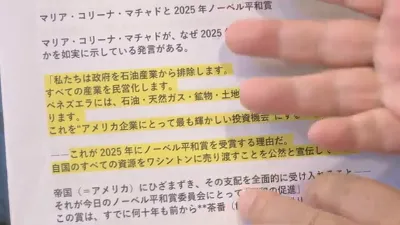 マリア・コリーナ・マチャドと 2025 年ノーベル平和賞
マリア・コリーナ・マチャドが、なぜ 2025
かを如実に示している発言がある。
「私たちは政府を石油産業から排除します。
すべての産業を民営化します。
ベネズエラには、石油・天然ガス・鉱物・土地
ります。
これを“アメリカ企業にとって最も輝かしい投資機会”にす
――これが 2025 年にノーベル平和賞を受賞する理由だ。
自国のすべての資源をワシントンに売り渡すことを公然と宣伝して
帝国（＝アメリカ）にひざまずき、その支配を全面的に受け入れること――
それが今日のノーベル平和賞委員会にとって
の促進」
この賞は、すでに何十年も前から**茶番